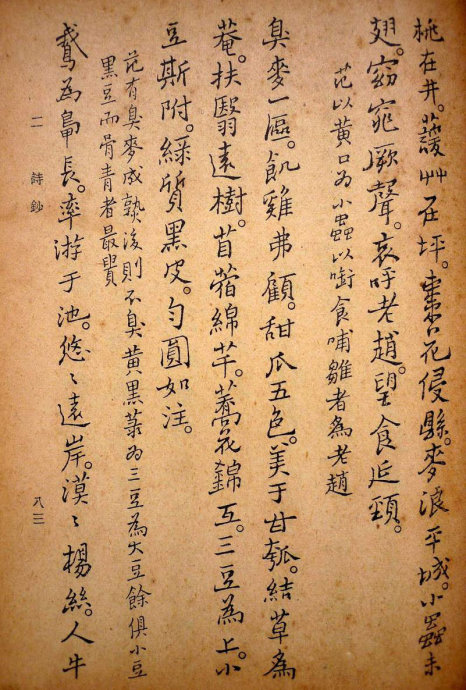 桃在井。蘐艸在坪。棗花侵縣。麥浪平城。小蟲未
翅。窈窕厥聲。哀呼老趙。望食延頸。
范以黃口為小蟲以啣食哺雛者為老趙
臭麥一區。飢雞弗顧。甜瓜五色。美于甘瓠。結草為
菴。扶翳遠樹。苜蓿綿芊。蕎花錦互。三豆為上。小
豆斯附。綠質黑皮。勻圓如注。
范有臭麥成熟後則不臭黃黑菉為三豆為大豆餘俱小豆
黑豆而骨青者最貴
鵞為鴨長。率游于池。悠〻遠岸。漠〻楊絲。人牛
二 詩鈔
八三